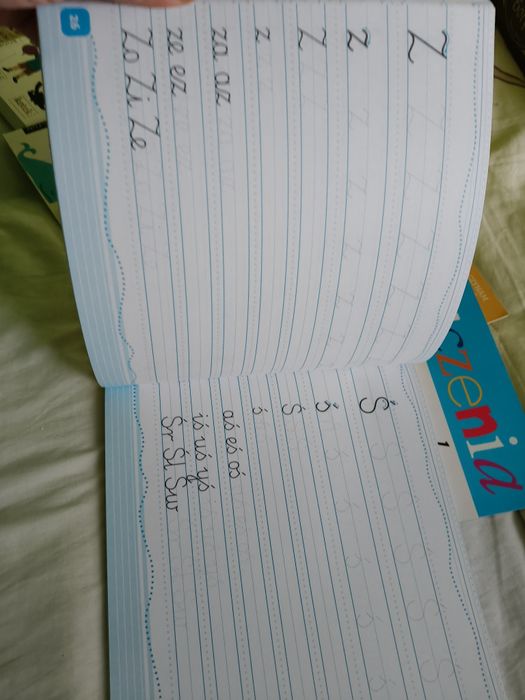 Z
z
Z
z
za az
ze ez
Zo Zi Ze
26
Ś
ś
Ś
ś
aś eś oś
iś uś yś
Śr Śl Św
czenia
1